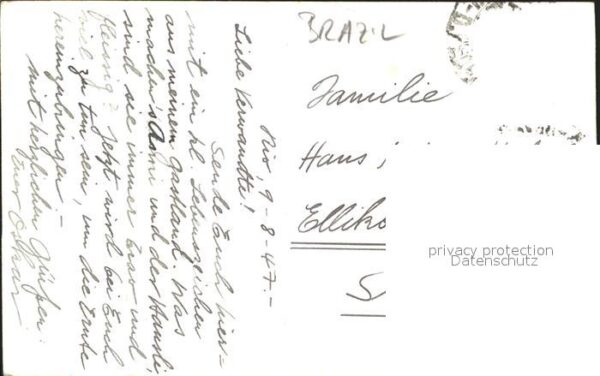 Rio, 9-8-47.-
Liebe Verwandte!
Sende Euch hier-
mit ein kl. Lebenszeichen
aus meinem Gastland. Was
macht's Anni und der Hansli,
sind sie immer brav und
fleissig? Jetzt wird bei Euch
viel zu tun sein, um die Ernte
hereinzubringen.-
mit herzlichen Grüßen:
Euer Oskar
BRAZIL
Familie
Hans
Elliko
S
privacy protection
Datenschutz